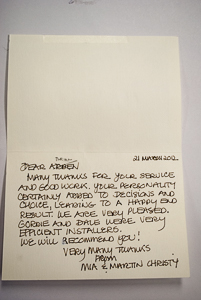 21 MARCH 2012
DEAR
MANY THANKS FOR YOUR SERVICE
AND GOOD WORK. YOUR PERSONALITY
CERTAINLY ADDED TO DECISIONS AND
CHOICE, LEADING TO A HAPPY END
RESULT. WE ARE VERY PLEASED.
GORDIE AND DALE WERE VERY
EFFICIENT INSTALLERS.
WE WILL RECOMMEND YOU!
VERY MANY THANKS
FROM
MIA & MARTIN CHRISTY